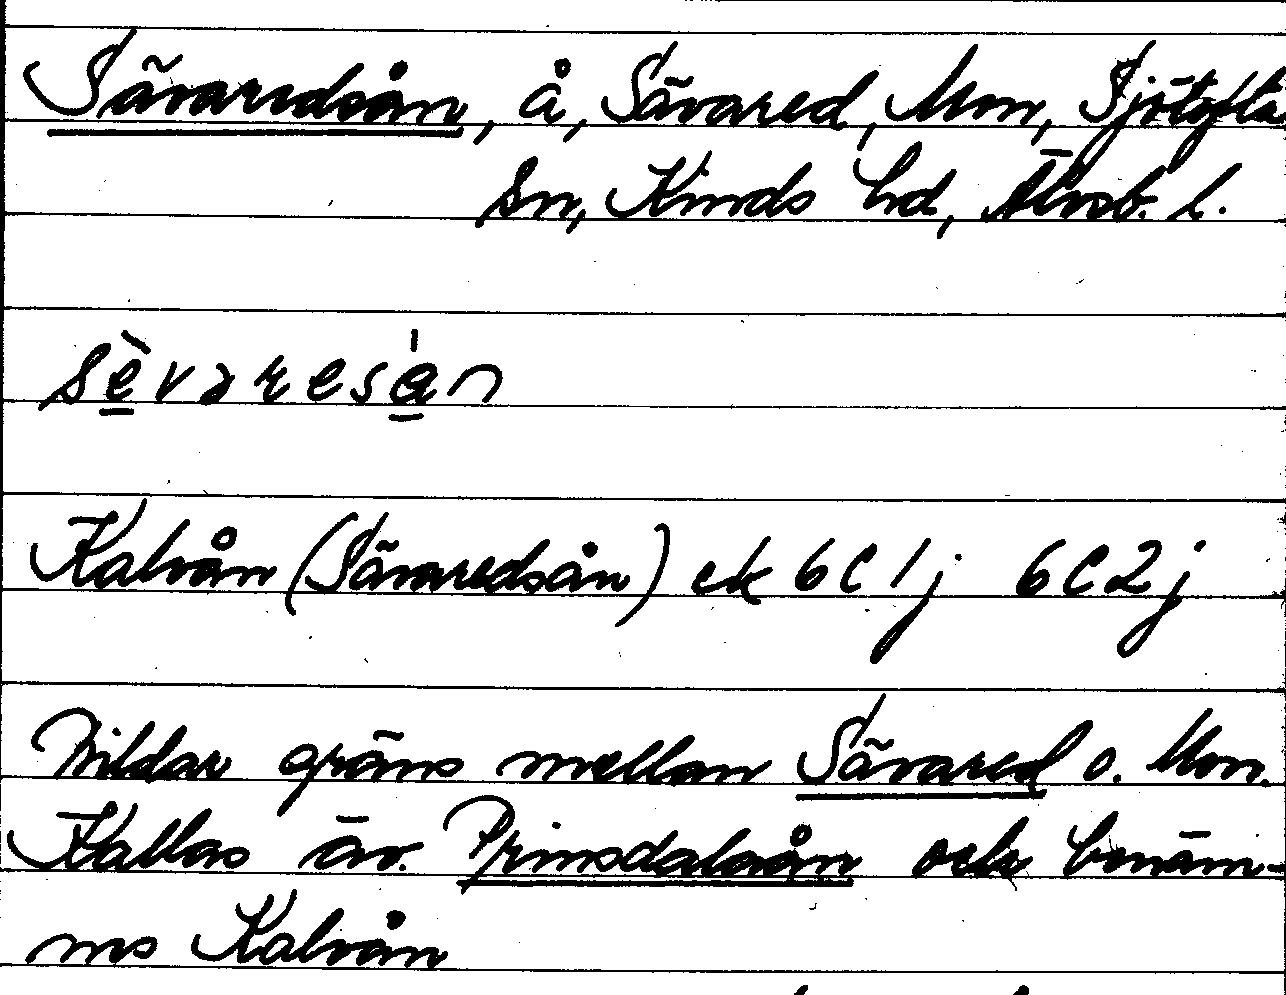 Sävaredsån, å, Sävared, Mon, Sjötofta
Sn, Kinds hd, Älvsb. l.
Kalvån (Sävaredsån) ek 6C1j 6C2j
Bildar gräns mellan Sävared o. Mon.
Kallas äv. Prinsdalaån och benäm-
nes Kalvån